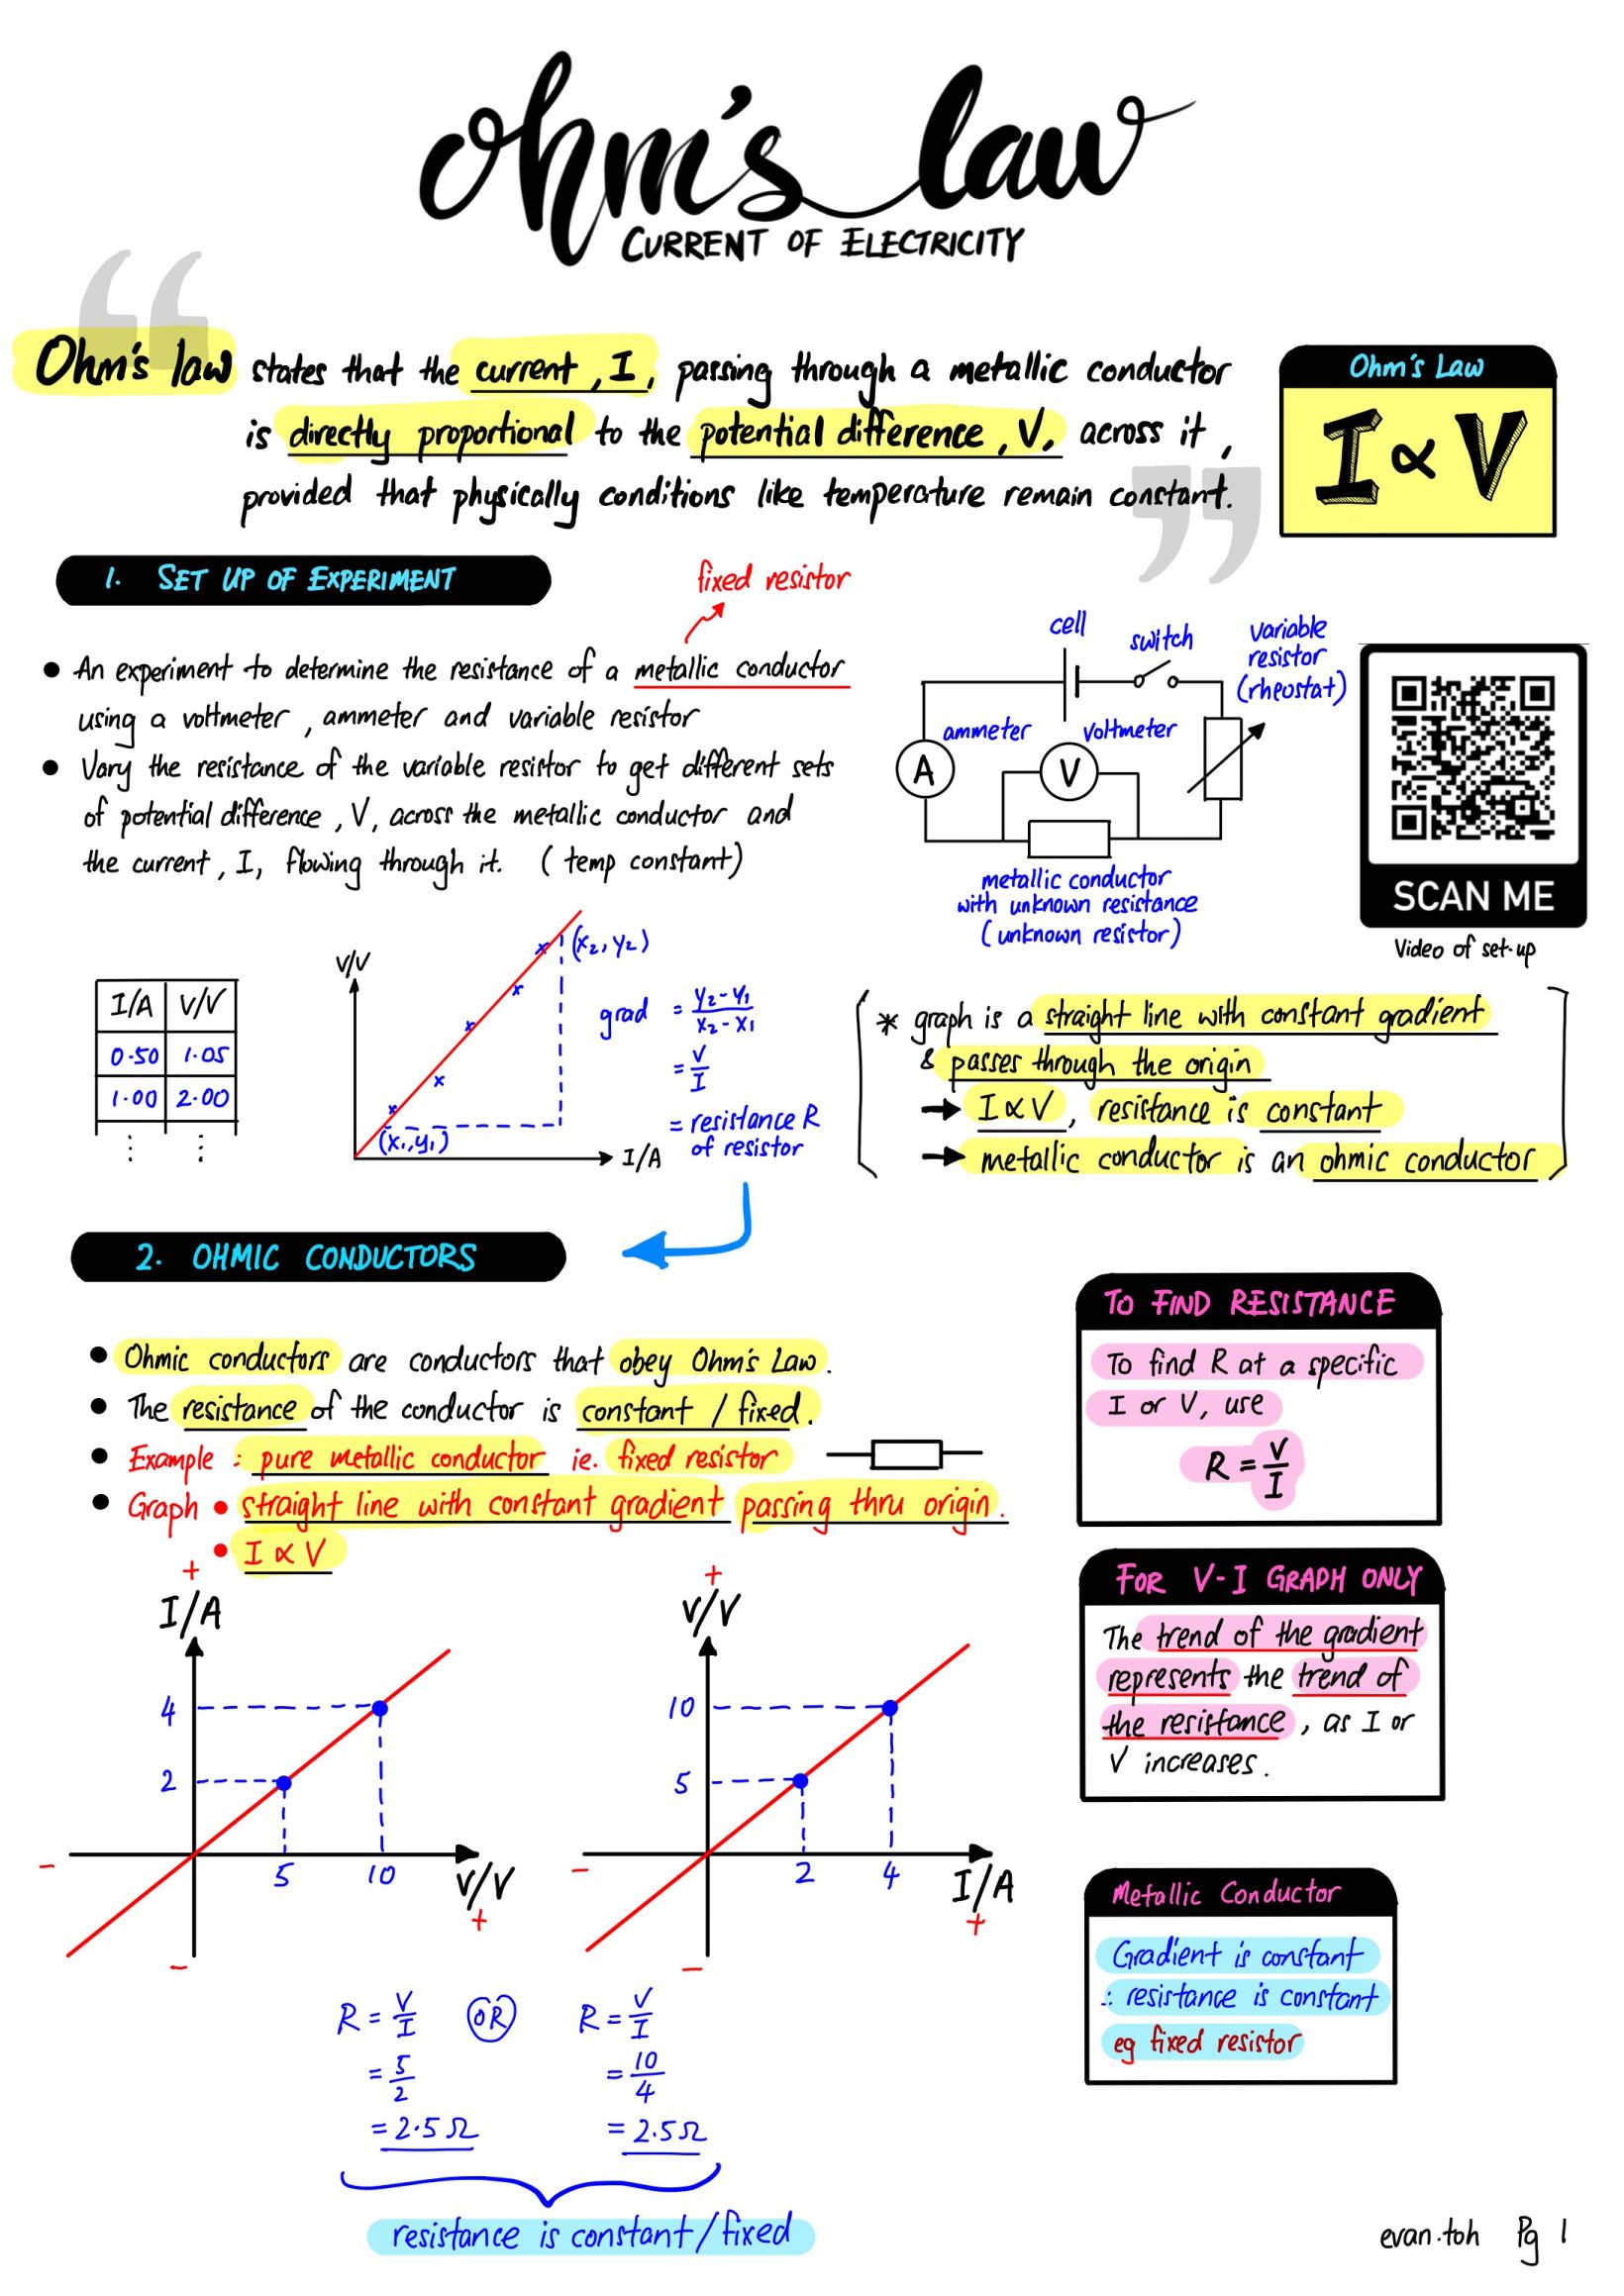 ohm's law
CURRENT OF ELECTRICITY
Ohm's law states that the current, I, passing through a metallic conductor
is directly proportional to the potential difference, V, across it,
provided that physically conditions like temperature remain constant.
Ohm's Law
I ∝ V
1. SET UP OF EXPERIMENT
fixed resistor
• An experiment to determine the resistance of a metallic conductor
using a voltmeter, ammeter and variable resistor
• Vary the resistance of the variable resistor to get different sets
of potential difference, V, across the metallic conductor and
the current, I, flowing through it. (temp constant)
cell
switch
variable
resistor
(rheostat)
ammeter
voltmeter
A
V
metallic conductor
with unknown resistance
(unknown resistor)
SCAN ME
Video of set-up
I/A V/V
0.50 1.05
1.00 2.00
⋮ ⋮
V/V
(x₂, y₂)
(x₁, y₁)
I/A
grad = y₂-y₁/x₂-x₁
= V/I
= resistance R
of resistor
* graph is a straight line with constant gradient
& passes through the origin
→ I ∝ V, resistance is constant
→ metallic conductor is an ohmic conductor
2. OHMIC CONDUCTORS
• Ohmic conductors are conductors that obey Ohm's Law.
• The resistance of the conductor is constant / fixed.
• Example : pure metallic conductor ie. fixed resistor
• Graph • straight line with constant gradient passing thru origin.
• I ∝ V
TO FIND RESISTANCE
To find R at a specific
I or V, use
R = V/I
FOR V-I GRAPH ONLY
The trend of the gradient
represents the trend of
the resistance, as I or
V increases.
Metallic Conductor
Gradient is constant
∴ resistance is constant
eg fixed resistor
+
I/A
4
2
5 10
V/V
+
−
−
+
V/V
10
5
2 4
I/A
+
−
−
R = V/I OR R = V/I
= 5/2 = 10/4
= 2.5 Ω = 2.5 Ω
resistance is constant/fixed
evan.toh Pg 1